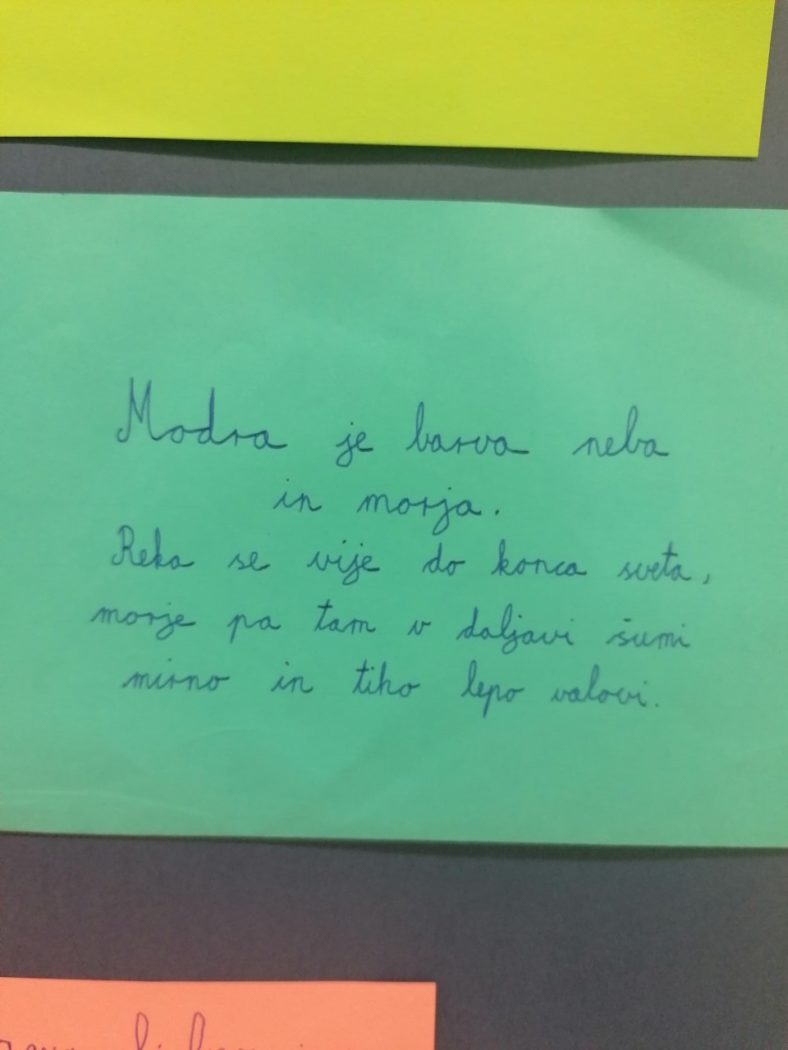 Modra je barva neba
in morja.
Reka se vije do konca sveta,
morje pa tam v daljavi šumi
mirno in tiho lepo valovi.